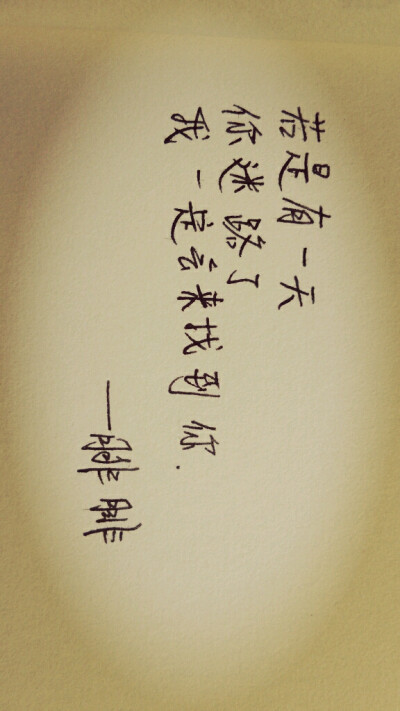 若是有一天
你迷路了
我一定会来找到你.
——腓腓